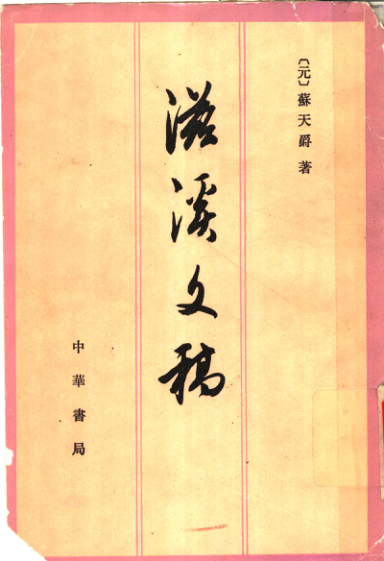 〔元〕蘇天爵 著
滋溪文稿
中華書局